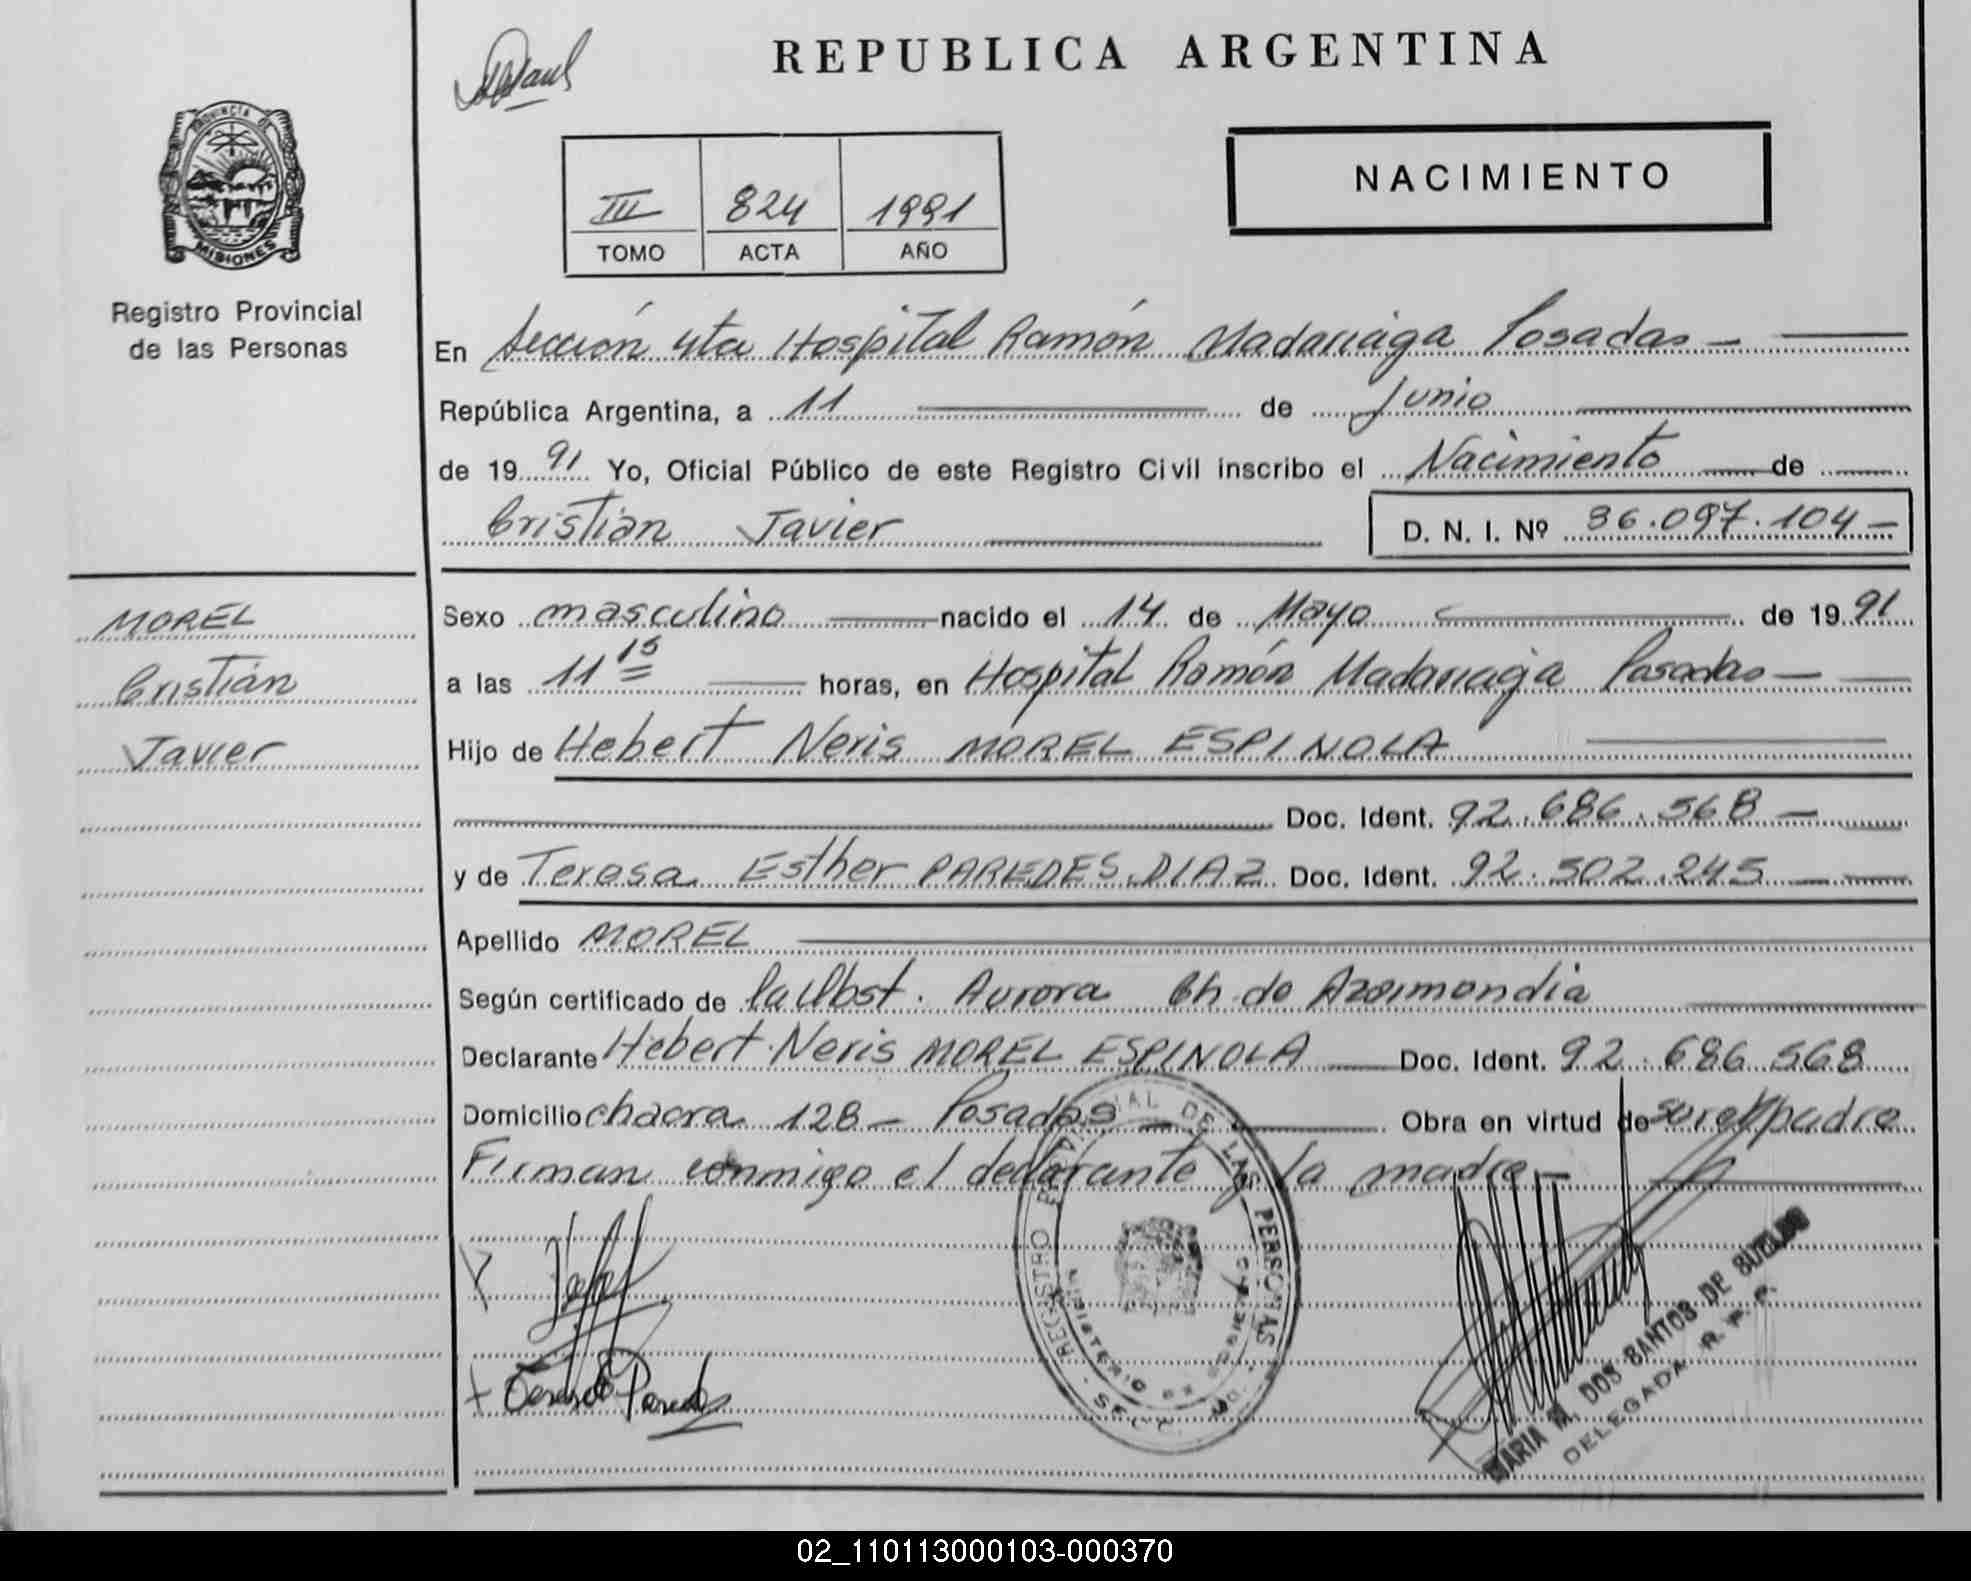 REPUBLICA ARGENTINA
PROVINCIA DE
MISIONES
Registro Provincial
de las Personas
III 824 1991
TOMO ACTA AÑO
NACIMIENTO
En Sección 4ta Hospital Ramón Madariaga Posadas —
República Argentina, a 11 de Junio
de 1991 Yo, Oficial Público de este Registro Civil inscribo el Nacimiento de
Cristian Javier D. N. I. Nº 36.097.104 —
MOREL
Cristian
Javier
Sexo masculino nacido el 14 de Mayo de 1991
a las 11 15 horas, en Hospital Ramón Madariaga Posadas —
Hijo de Hebert Neris MOREL ESPINOLA
Doc. Ident. 92.686.568 —
y de Teresa Esther PAREDES DIAZ Doc. Ident. 92.502.245 —
Apellido MOREL
Según certificado de la Obst. Aurora Ch. de Azoimondia
Declarante Hebert Neris MOREL ESPINOLA Doc. Ident. 92.686.568
Domicilio chacra 128 — Posadas — Obra en virtud de ser el padre
Firman conmigo el declarante y la madre —
REGISTRO PROVINCIAL DE LAS PERSONAS
MINISTERIO DE GOBIERNO
SECC.
Teresa Paredes
MARIA M. DOS SANTOS DE
DELEGADA R. P. P.
02_110113000103-000370